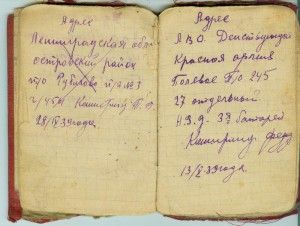 Адрес
Ленинградская обл
островский район
п/о Рубилово п/я № 3
ч/45М Каширину
28/IX 39 года
Адрес
Л.В.О. Действующая
Красная армия
Полевое П/о 245
27 отдельный
37 батарея
Каширину
13/X 39 года.